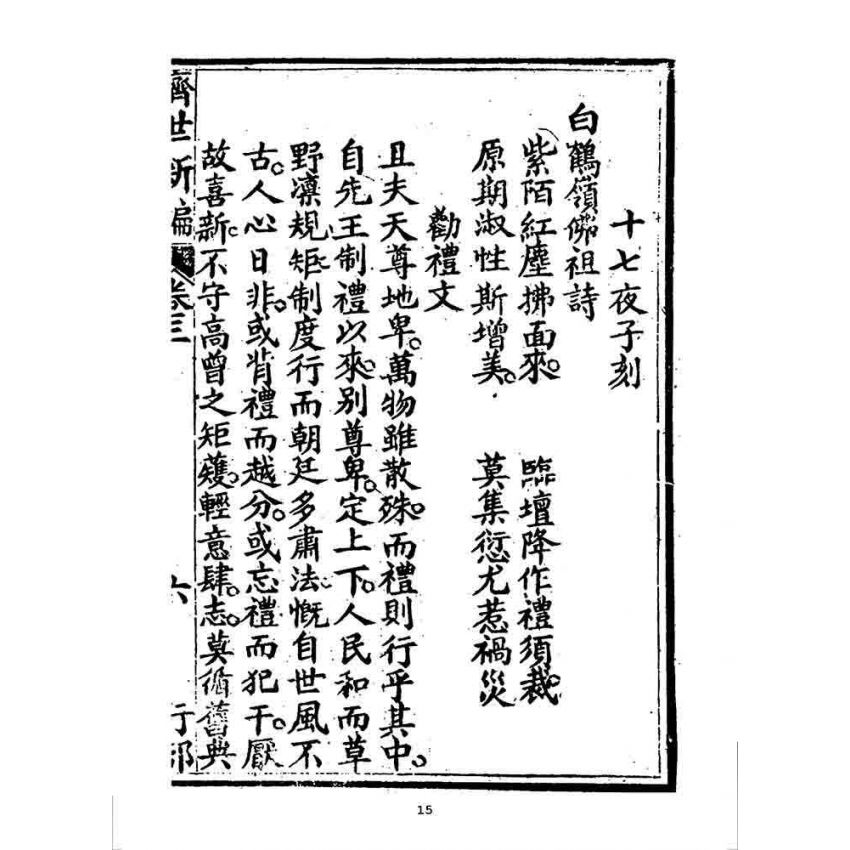 十七夜子刻
白鶴嶺佛祖詩
紫陌紅塵拂面來。 臨壇降作禮須裁。
原期淑性斯增美。 莫集愆尤惹禍災
勸禮文
且夫天尊地卑。萬物雖散殊。而禮則行乎其中。
自先王制禮以來。別尊卑。定上下。人民和而草
野凛規矩。制度行而朝廷多肅法。慨自世風不
古。人心日非。或背禮而越分。或忘禮而犯干。厭
故喜新。不守高曾之矩矱。輕意肆志。莫循舊典
濟世新編 卷三 六 行部
15